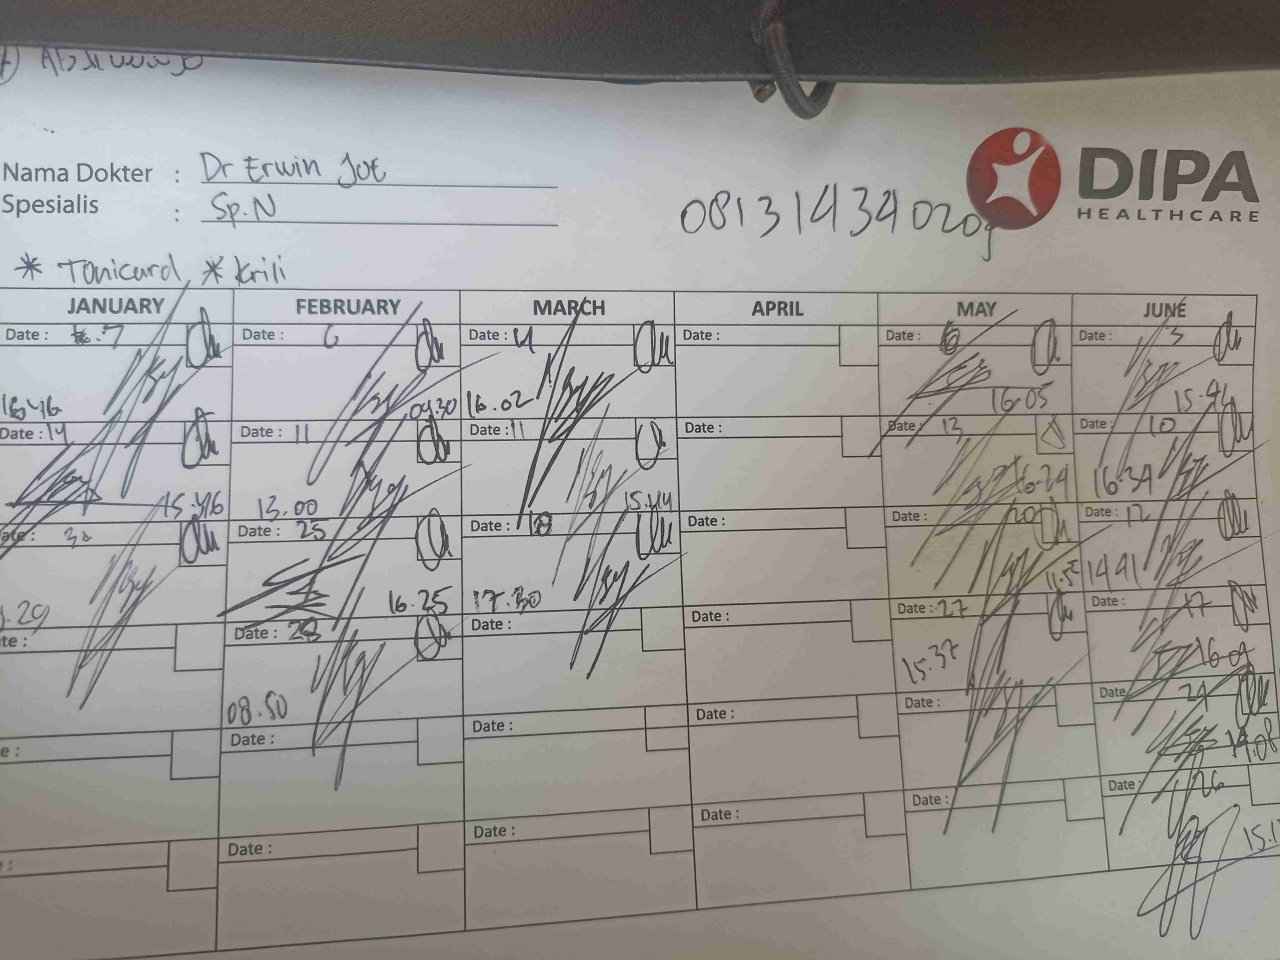 Nama Dokter : Dr Erwin Joe
Spesialis : Sp.N
DIPA
HEALTHCARE
* Tonicard * Krili
JANUARY FEBRUARY MARCH APRIL MAY JUNE
Date : 7 Date : 6 Date : 4 Date : Date : 6 Date : 3
16.46 09.30 16.02 16.05 15.44
Date : 14 Date : 11 Date : 11 Date : Date : 13 Date : 10
15.46 13.00 15.44 16.24 16.34
Date : 25 Date : 18 Date : Date : 20 Date : 12
16.25 17.30 14.41
Date : 28 Date : Date : Date : 27 Date : 17
08.50 15.37 16.09
Date : Date : Date : Date : Date : 24
19.08
Date : Date : Date : Date : Date : 26